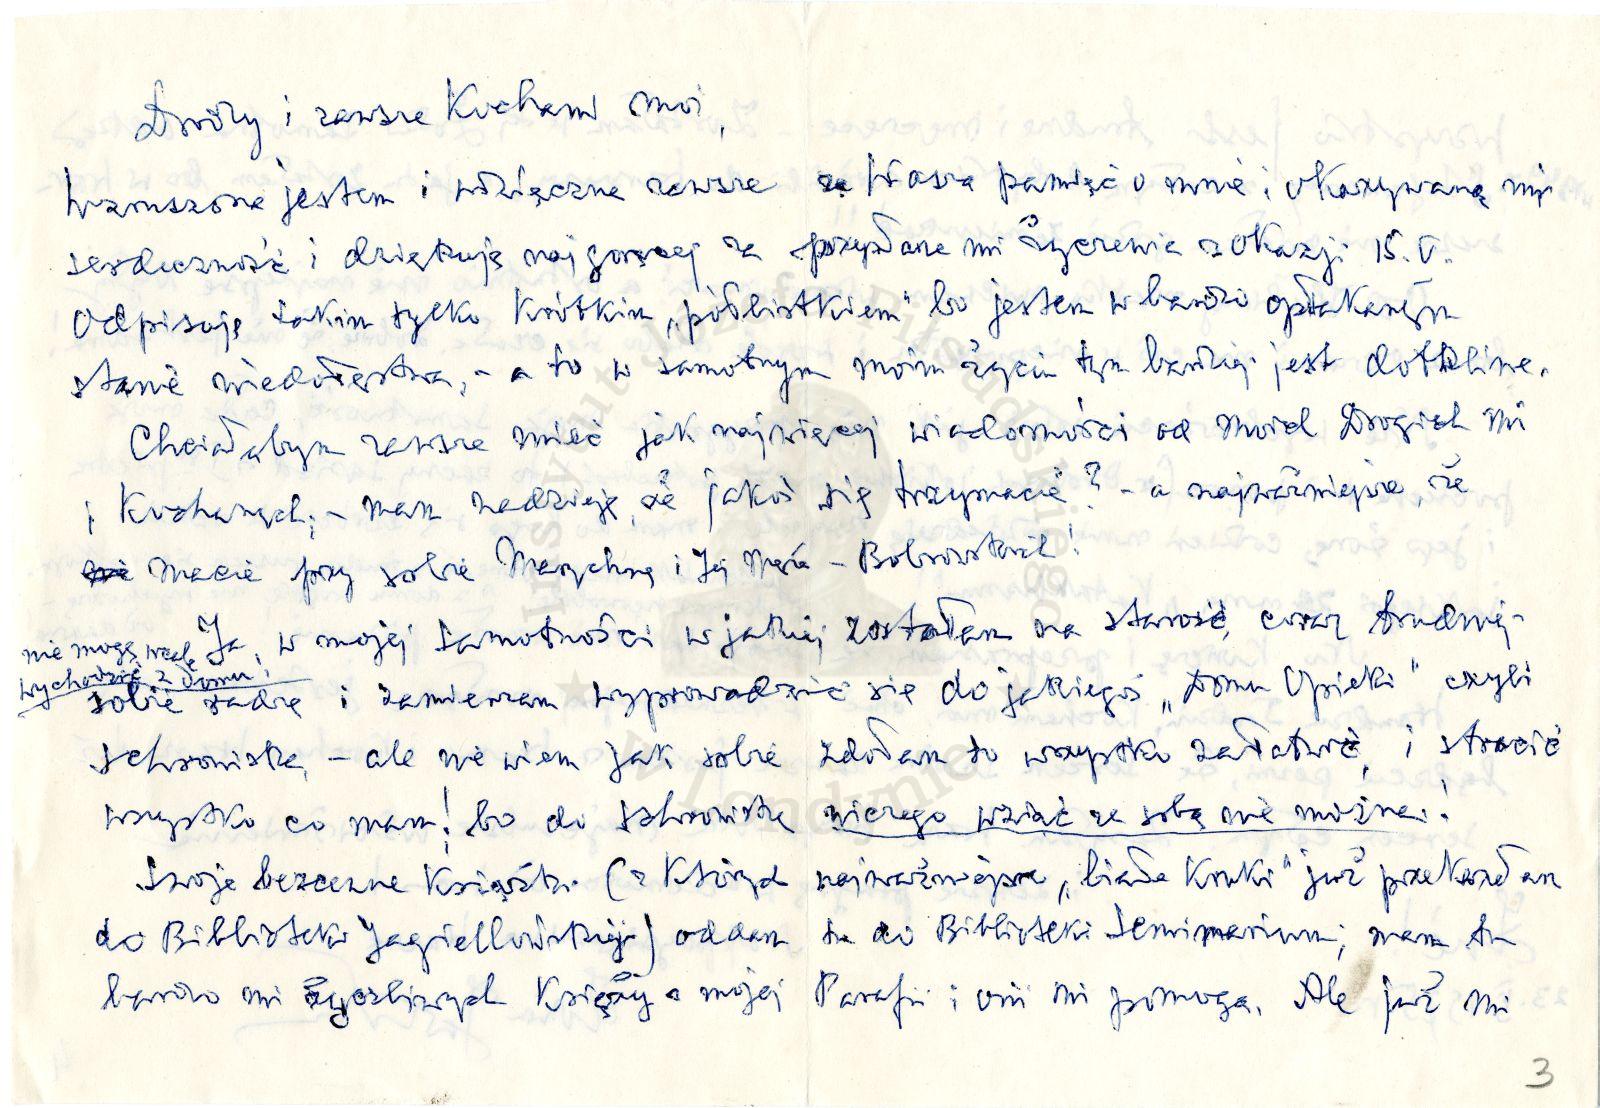 Drodzy i zawsze Kochani moi,
Wzruszona jestem i wdzięczna zawsze za Waszą pamięć o mnie i okazywaną mi
serdeczność i dziękuję najgoręcej za przysłane mi życzenia z okazji 15.V.
Odpisuję takim tylko krótkim „półlistkiem" bo jestem w bardzo opłakanym
stanie niedołęstwa, – a to w samotnym moim życiu tym bardziej jest dotkliwe.
Chciałabym zawsze mieć jak najwięcej wiadomości od moich Drogich mi
i Kochanych; – mam nadzieję, że jakoś się trzymacie? – a najważniejsze, że
macie przy sobie Marychnę i Jej Męża – Bobrowskich!
Ja, w mojej samotności w jakiej zostałam na starość, coraz trudniej
nie mogę wcale
wychodzić z domu!
sobie radzę i zamierzam wyprowadzić się do jakiegoś „Domu Opieki" czyli
schroniska, – ale nie wiem jak sobie zdołam to wszystko załatwić, i stracić
wszystko co mam! bo do schroniska niczego wziąć ze sobą nie można!
Swoje bezcenne książki (z których najważniejsze „białe kruki" już przekazałam
do Biblioteki Jagiellońskiej) oddam tu do Biblioteki Seminarium; mam tu
bardzo mi życzliwych Księży z mojej Parafii i oni mi pomogą. Ale już mi
3
Instytut Józefa Piłsudskiego
w Londynie